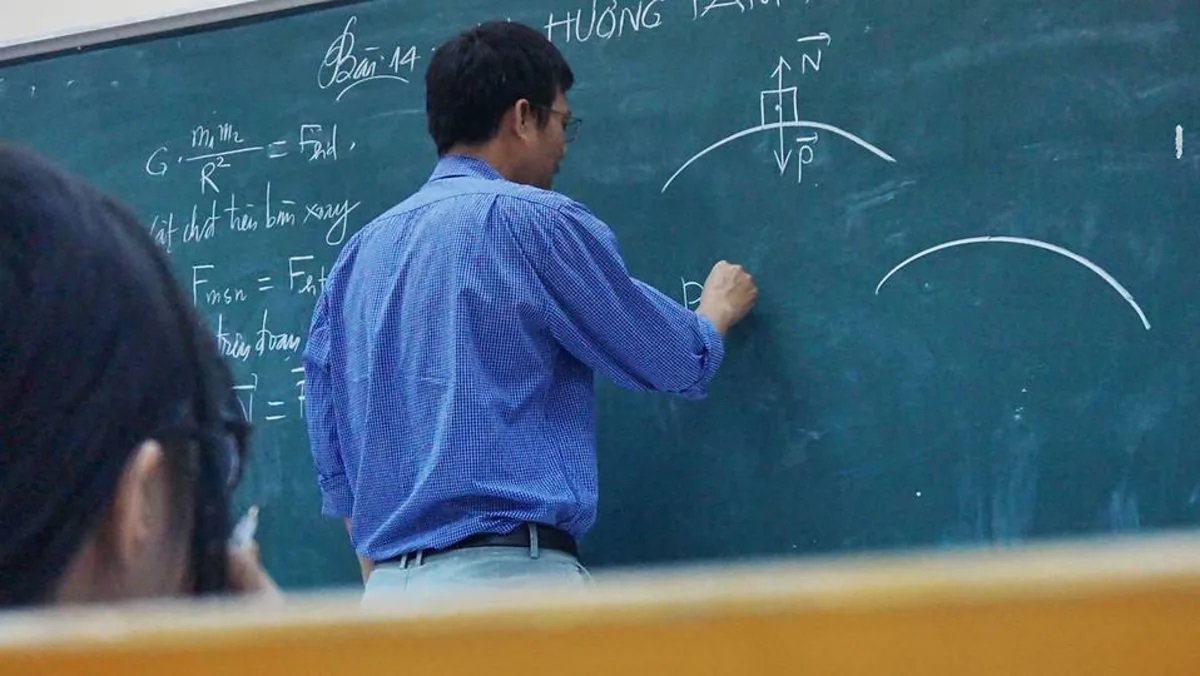 Bài 14
HƯỚNG TÂM
G . m₁m₂ / R² = Fhd .
vật chất trên bàn xoay
Fmsn = Fht
trên đoạn
N =
N
P
P